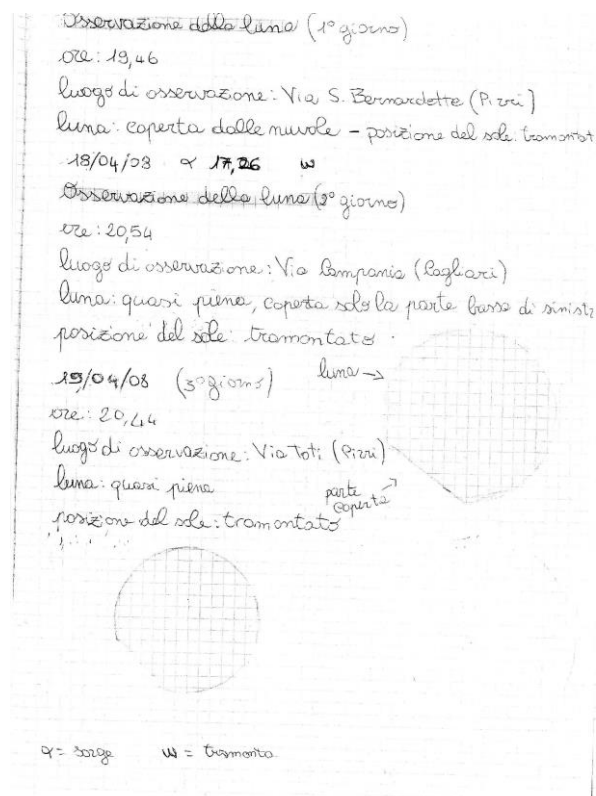 Osservazione della luna (1° giorno)
ore: 19,46
luogo di osservazione: Via S. Bernardette (Pirri)
luna: coperta dalle nuvole - posizione del sole: tramontat
18/04/08 α 17,26 ω
Osservazione della luna (2° giorno)
ore: 20,54
luogo di osservazione: Via Campania (Cagliari)
luna: quasi piena, coperta solo la parte bassa di sinist
posizione del sole: tramontato.
19/04/08 (3° giorno)
luna →
ore: 20,44
luogo di osservazione: Via Toti (Pirri)
luna: quasi piena
parte
coperta
posizione del sole: tramontato
α = sorge ω = tramonta